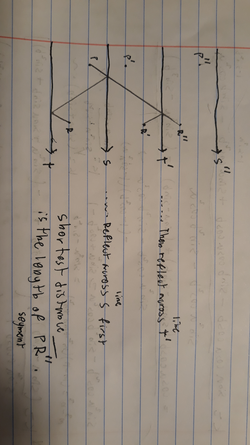 P"
S"
line
R"
t' ...... Then reflect across t'
R'
P'
line
S ...... Reflect across S first
P
R
t
shortest distance
is the length of PR".
segment